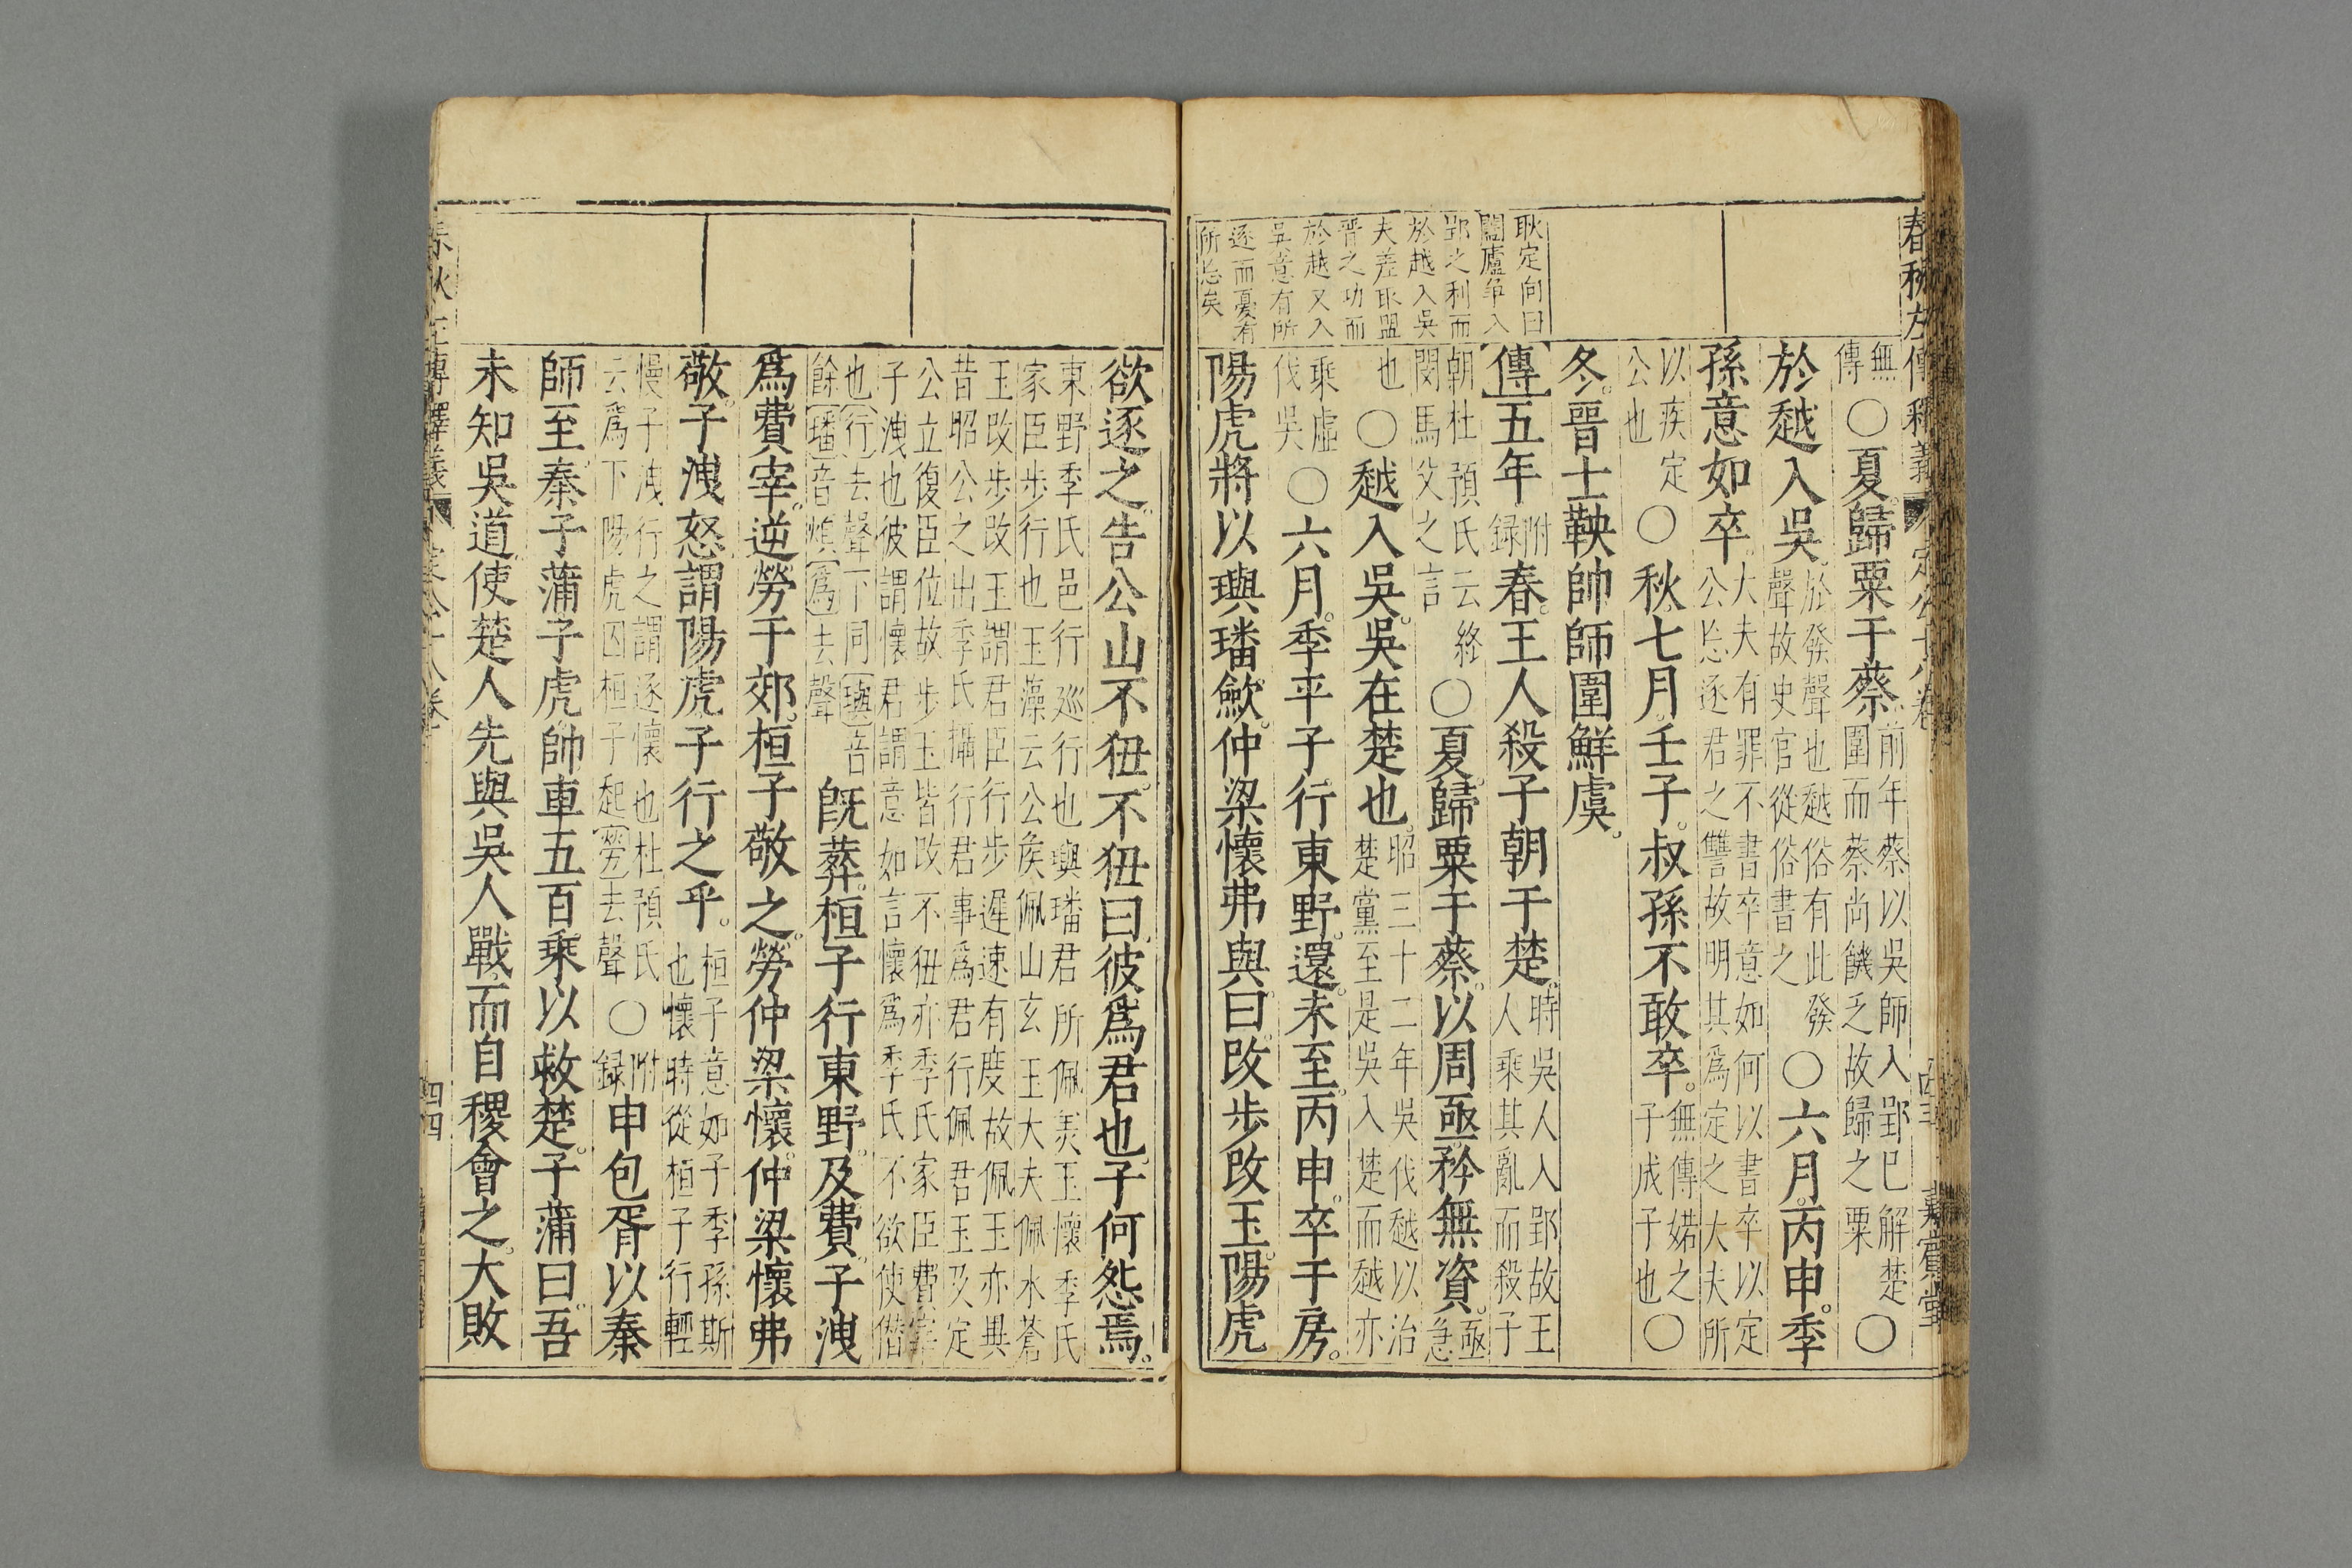 春秋左傳釋義
定公十八卷
無傳○夏歸粟于蔡前年蔡以吳師入郢已解楚圍而蔡尚饑乏故歸之粟○
於越入吳於發聲也越俗有此發聲故史官從俗書之○六月丙申季
孫意如卒大夫有罪不書卒意如何以書卒以定公㤀逐君之讐故明其爲定之大夫所
以疾定公也○秋七月壬子叔孫不敢卒無傳婼之子成子也○
冬晉士鞅帥師圍鮮虞
傳五年附録春王人殺子朝于楚時吳人入郢故王人乘其亂而殺子
朝杜預氏云終閔馬父之言○夏歸粟于蔡以周亟矜無資亟急
也○越入吳吳在楚也昭三十二年吳伐越以治楚黨至是吳入楚而越亦
乘虛伐吳○六月季平子行東野還未至丙申卒于房
陽虎將以璵璠歛仲梁懷弗與曰改步改玉陽虎
耿定向曰
闔廬争入
郢之利而
於越入吳
夫差取盟
晉之功而
於越又入
吳意有所
逐而憂有
所㤀矣
欲逐之告公山不狃不狃曰彼爲君也子何怨焉
東野季氏邑行廵行也璵璠君所佩美玉懷季氏家臣步行也玉藻云公侯佩山玄玉大夫佩水蒼
玉改步改玉謂君臣行步遲速有度故佩玉亦異昔昭公之出季氏攝行君事爲君行佩君玉及定
公立復臣位故步玉皆改不狃亦季氏家臣費宰子洩也彼謂懷君謂意如言懷爲季氏不欲使僭
也行去聲下同璵音餘璠音煩爲去聲既葬桓子行東野及費子洩
爲費宰逆勞于郊桓子敬之勞仲梁懷仲梁懷弗
敬子洩怒謂陽虎子行之乎桓子意如子季孫斯也懷時從桓子行輕
慢子洩行之謂逐懷也杜預氏云爲下陽虎囚桓子起勞去聲○附録申包胥以秦
師至秦子蒲子虎帥車五百乘以救楚子蒲曰吾
未知吳道使楚人先與吳人戰而自稷會之大敗
四四